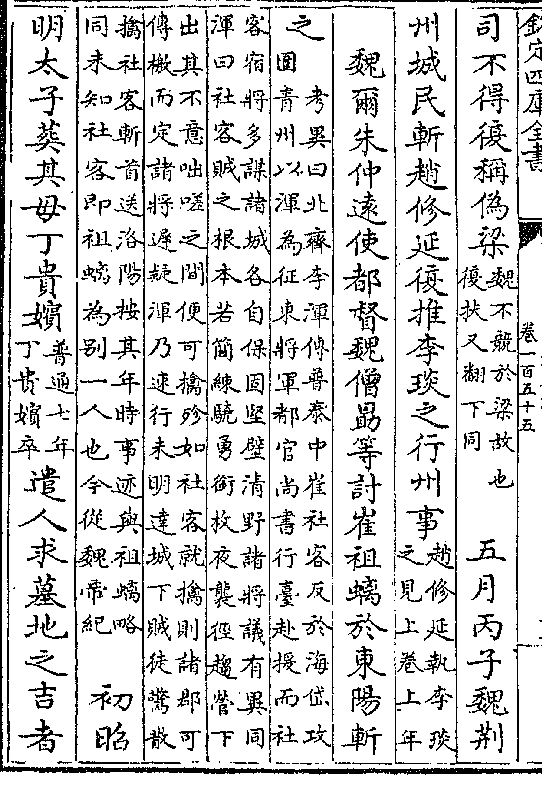 欽定四庫全書
卷一百五十五
司不得復稱偽梁
魏不競於梁故也
復扶又翻下同
五月丙子魏荆
州城民斬趙修延復推李琰之行州事
趙修延執李琰
之見上卷上年
魏爾朱仲遠使都督魏僧勗等討崔祖螭於東陽斬
之
考異曰北齊李渾傳普泰中崔社客反於海岱攻
圍青州以渾為征東將軍都官尚書行臺赴援而社
客宿將多謀諸城各自保固堅壁清野諸將議有異同
渾曰社客賊之根本若簡練驍勇銜枚夜襲徑趨營下
出其不意咄嗟之間便可擒殄如社客就擒則諸郡可
傳檄而定諸將遲疑渾乃速行未明達城下賊徒驚散
擒社客斬首送洛陽按其年時事迹與祖螭略
同未知社客即祖螭為别一人也今從魏帝紀
初昭
明太子葬其母丁貴嬪
普通七年
丁貴嬪卒
遣人求墓地之吉者